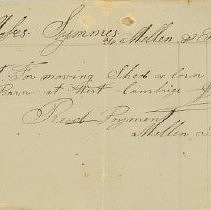 Symmes to Mellen &
For moving Shed & Corn
Barn at West Cambrige
Recd Payment
Mellen &